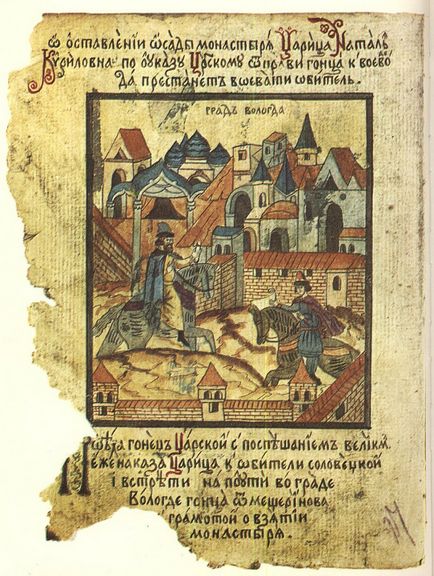 Ѡ ѡставленїи ѡсады монастырѧ Царица Наталь
Кѵриловна по указу Црскому ѿправи гонца к воево
да престанетъ воевати ѡбитель.
градъ вологда
гонецъ Царской с поспѣшанїемъ велїкм
еже наказа Царица к ѡбители соловецкой
ї встрѣти на поути во граде
Вологде гонца ѿ мещерїнова
грамотой о взятїи
монастырѧ.